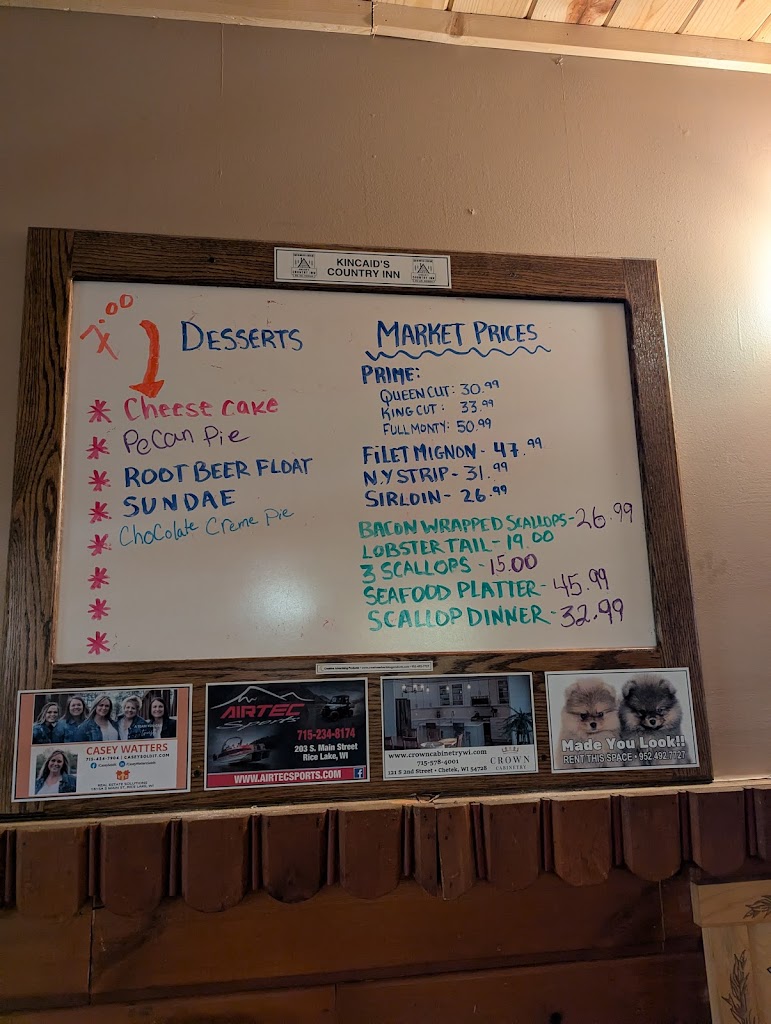 KINCAID'S
COUNTRY INN
7.00
DESSERTS
* Cheese cake
* Pecan Pie
* ROOT BEER FLOAT
* SUNDAE
* Chocolate Creme Pie
*
*
*
MARKET PRICES
PRIME:
QUEEN CUT: 30.99
KING CUT: 33.99
FULL MONTY: 50.99
FILET MIGNON - 47.99
N.Y STRIP - 31.99
SIRLOIN - 26.99
BACON WRAPPED SCALLOPS - 26.99
LOBSTER TAIL - 19.00
3 SCALLOPS - 15.00
SEAFOOD PLATTER - 45.99
SCALLOP DINNER - 32.99
CASEY WATTERS
REAL ESTATE SOLUTIONS
AIRTEC
Sports
715-234-8174
203 S. Main Street
Rice Lake, WI
WWW.AIRTECSPORTS.COM
www.crowncabinetrywi.com
715-578-4001
121 S 2nd Street • Chetek, WI 54728
CROWN
CABINETRY
Made You Look!!
RENT THIS SPACE • 952.492.7727